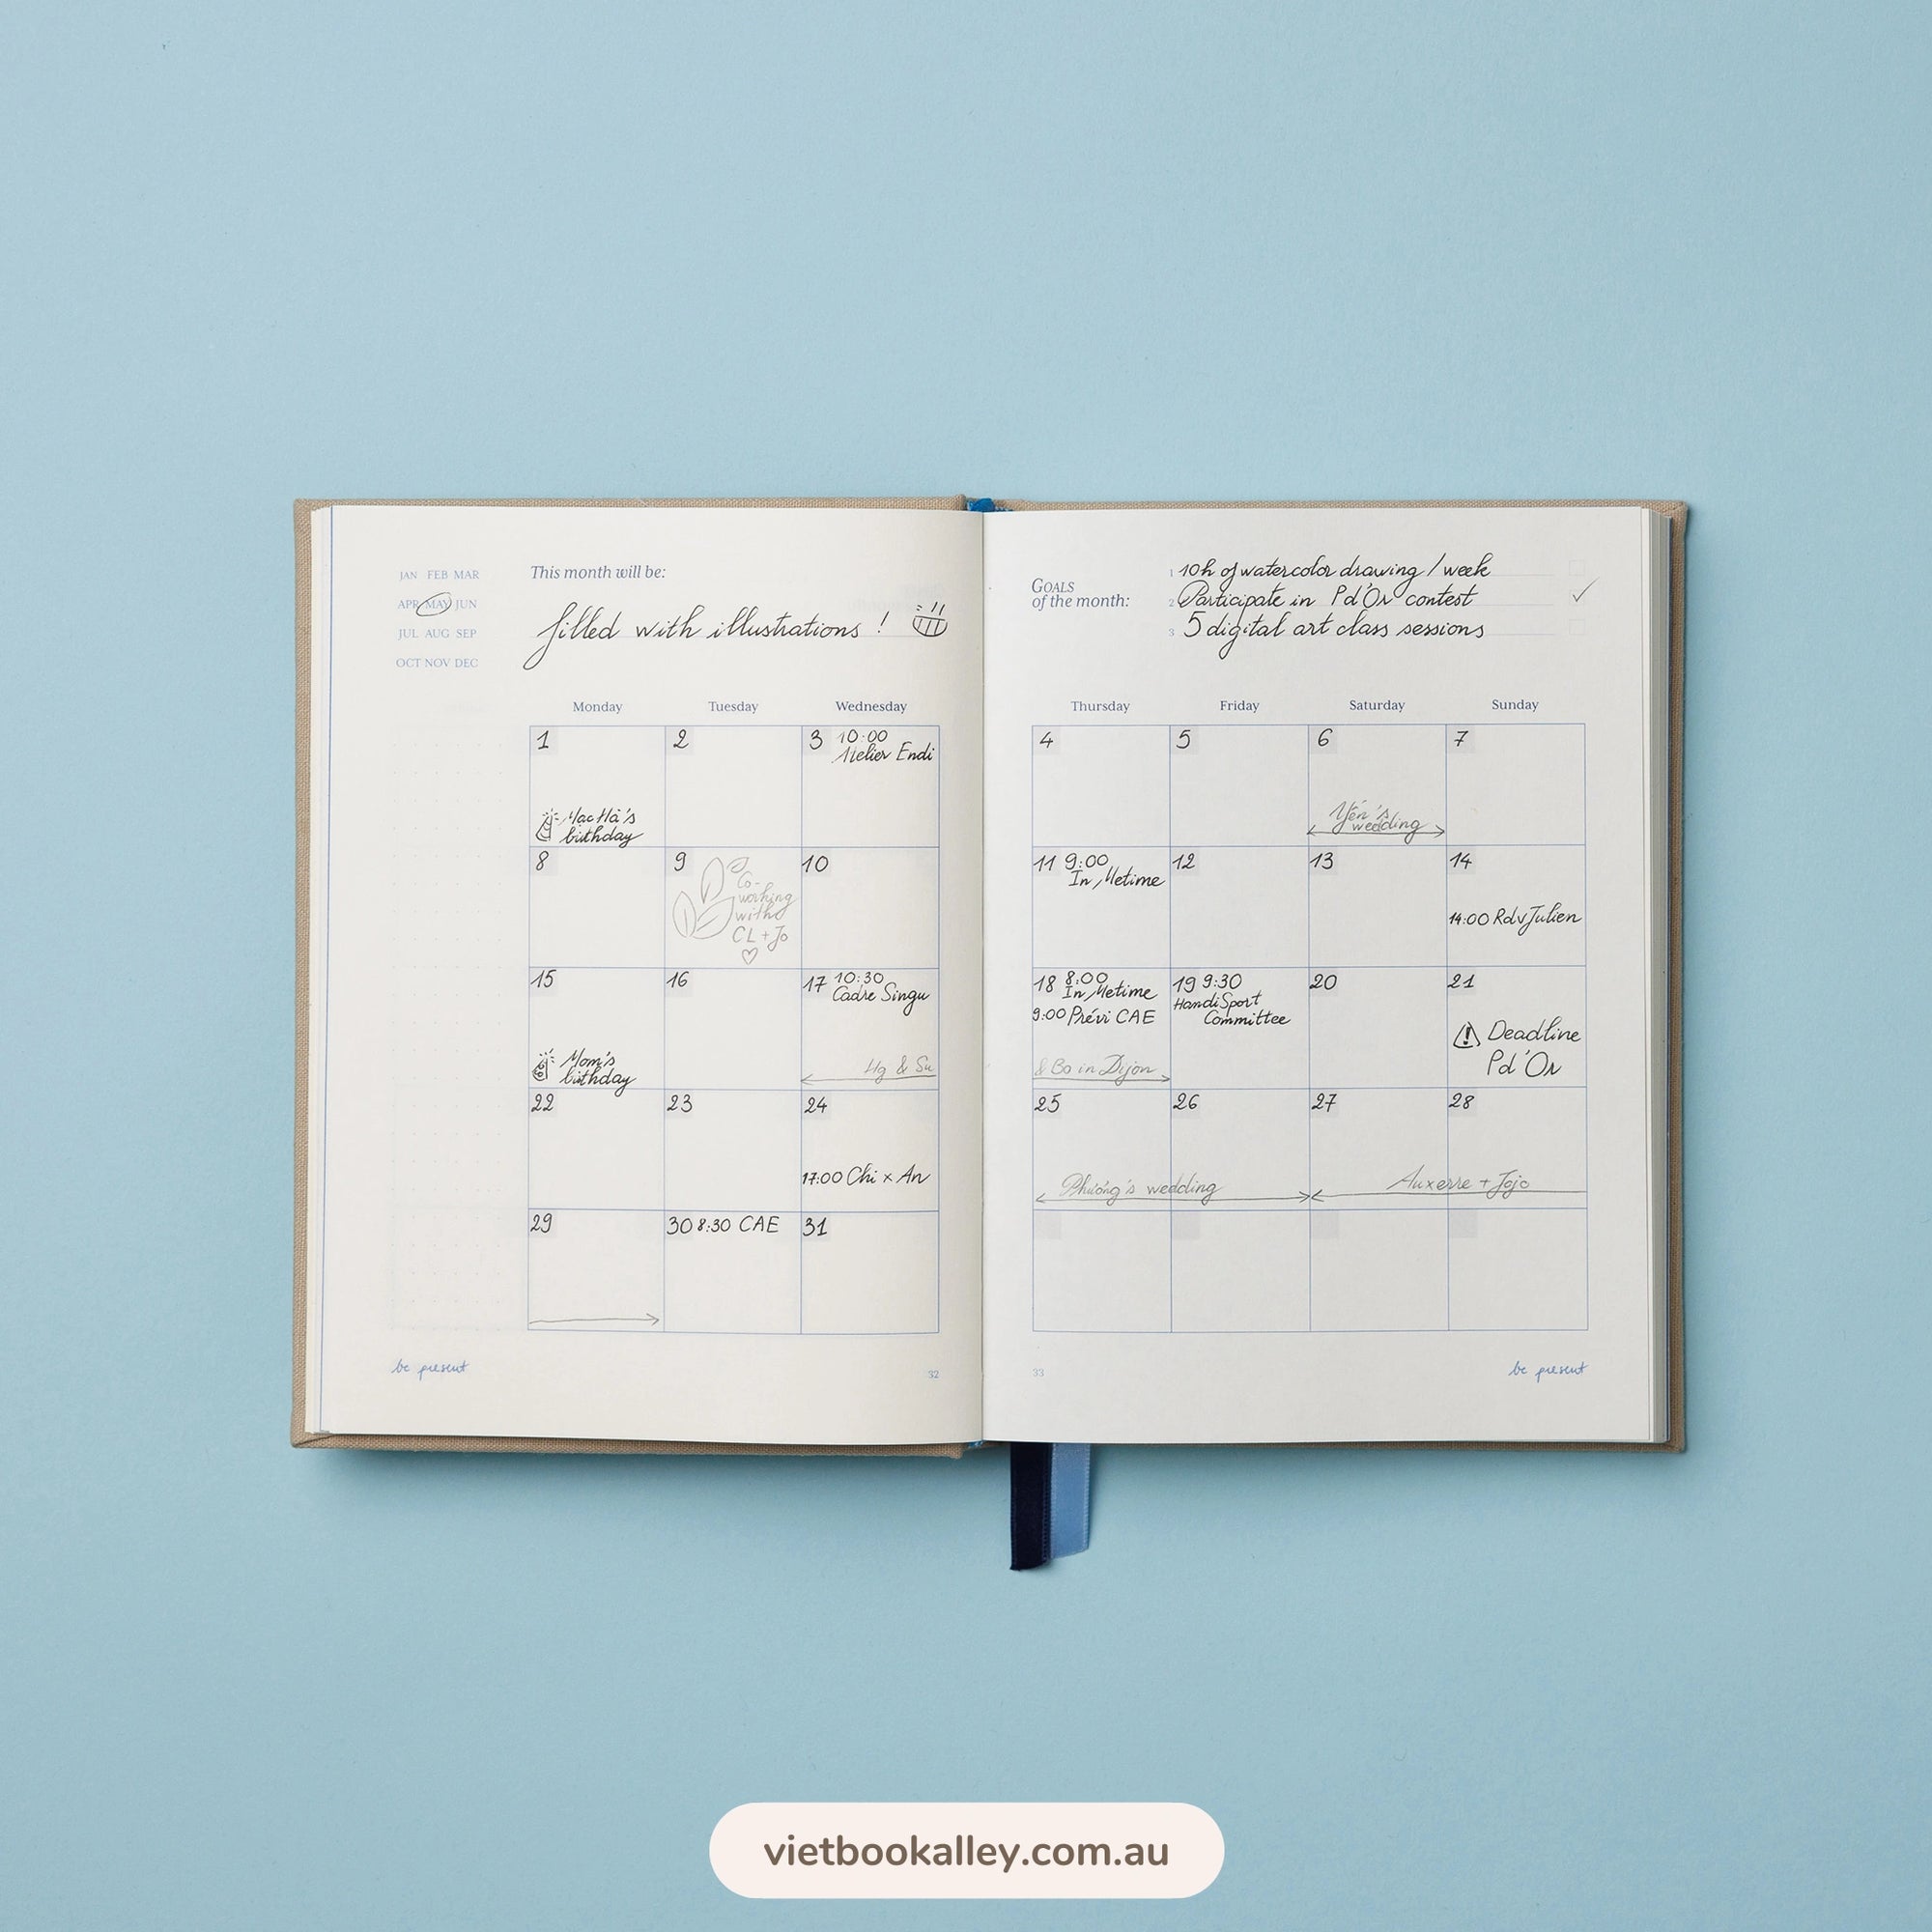 JAN FEB MAR
APR MAY JUN
JUL AUG SEP
OCT NOV DEC
This month will be:
filled with illustrations !
GOALS
of the month:
1 10h of watercolor drawing / week
2 Participate in Pd'Or contest
3 5 digital art class sessions
Monday Tuesday Wednesday Thursday Friday Saturday Sunday
1
birthday
2
3 10:00
Atelier Endi
4
5
6
Yến's
wedding
7
8
9
Co-
working
with
CL + Jo
10
11 9:00
In Metime
12
13
14
14:00 Rdv Julien
15
Mom's
birthday
16
17 10:30
Cadre Singu
Hg & Su
18 8:00
In Metime
9:00 Prévi CAE
& Bo in Dijon
19 9:30
HandiSport
Committee
20
21
Deadline
Pd'Or
22
23
24
17:00 Chi x An
25
26
Phương's wedding
27
28
Auxerre + Jojo
29
30 8:30 CAE
31
be present
32
33
be present
vietbookalley.com.au